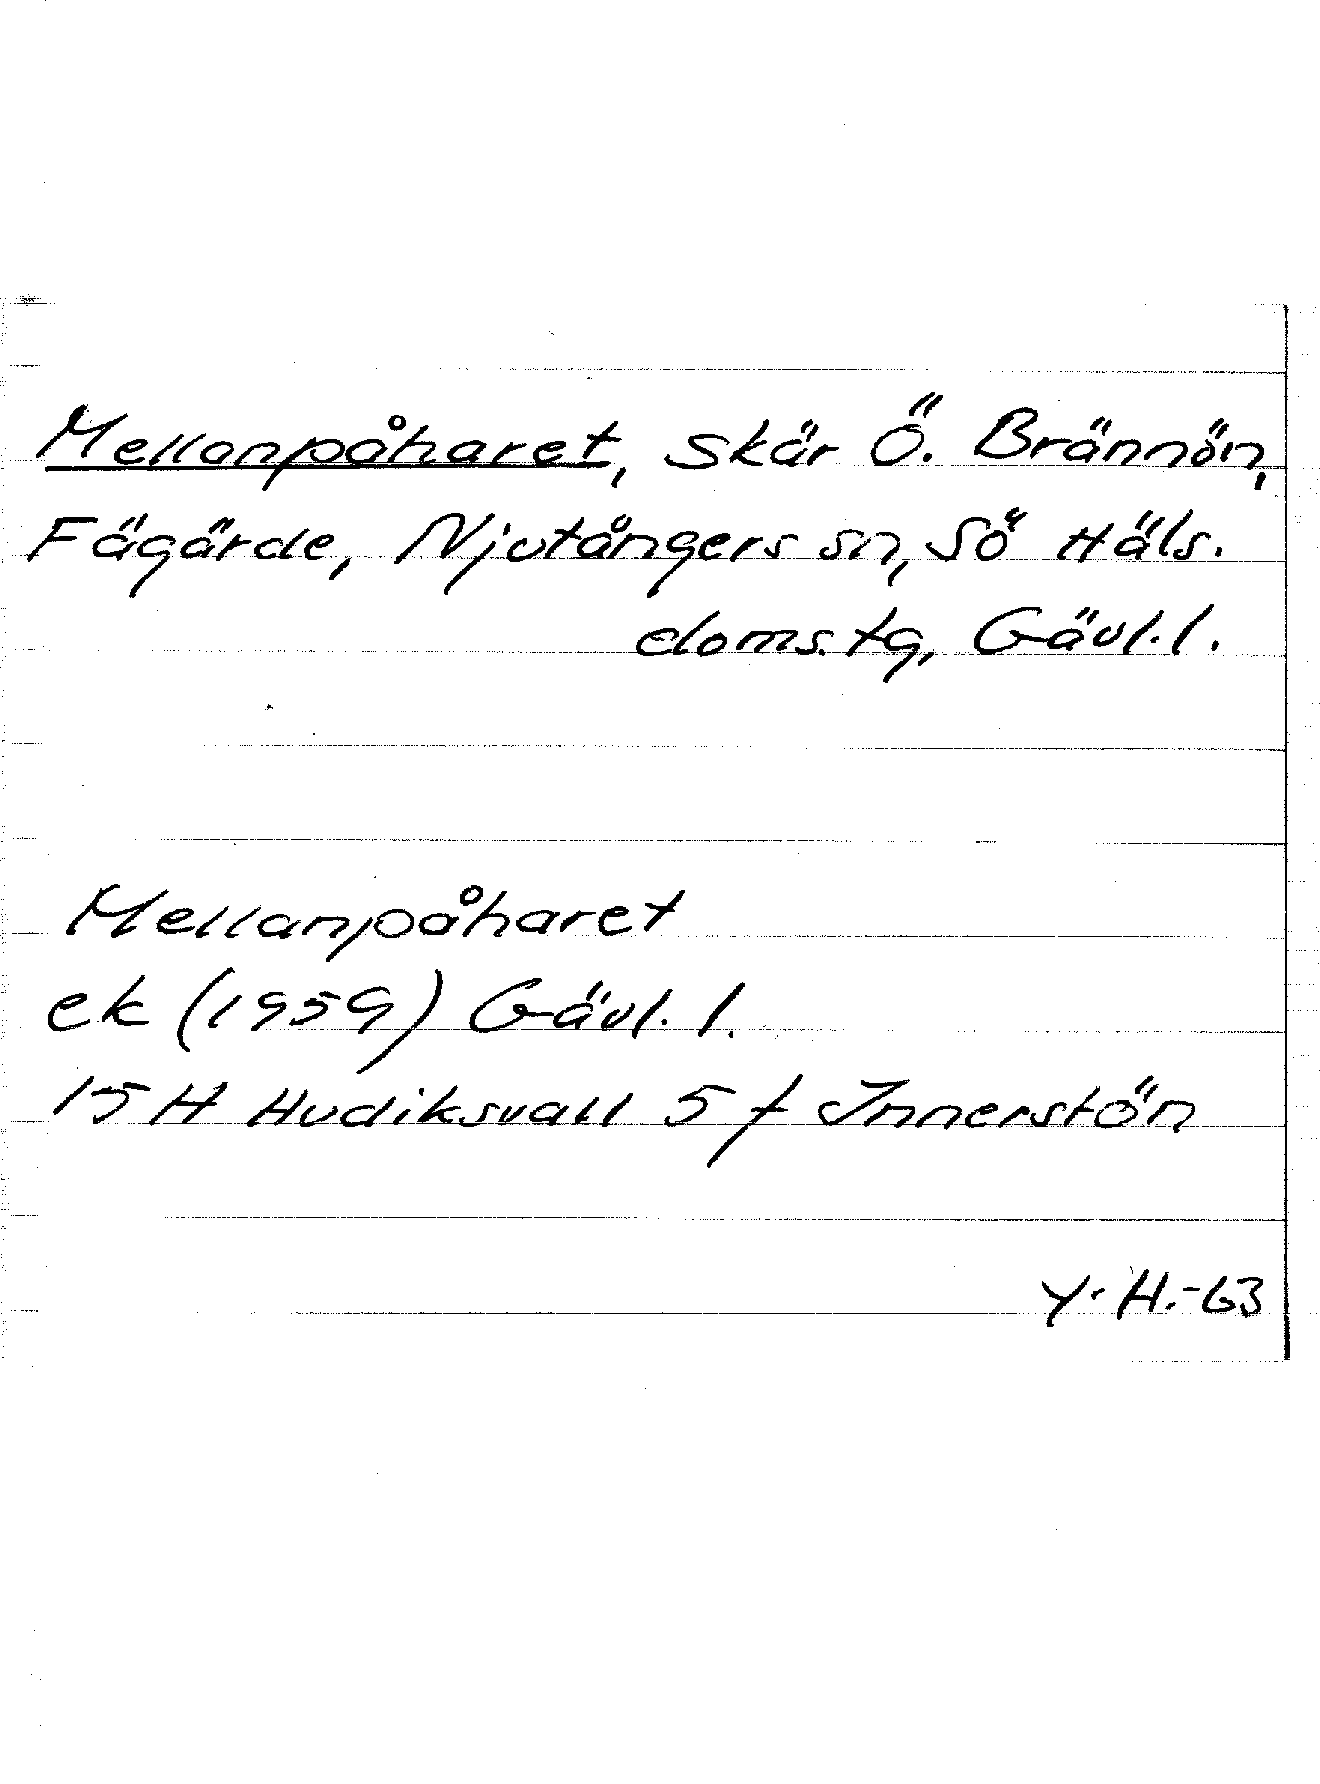 Mellanpåharet, Skär Ö. Brännön,
Fägärde, Njutångers sn, Sö Häls.
doms.tg, Gävl.l.
Mellanpåharet
ek (1959) Gävl.l.
15 H Hudiksvall 5 f Innerstön
Y.H.-63